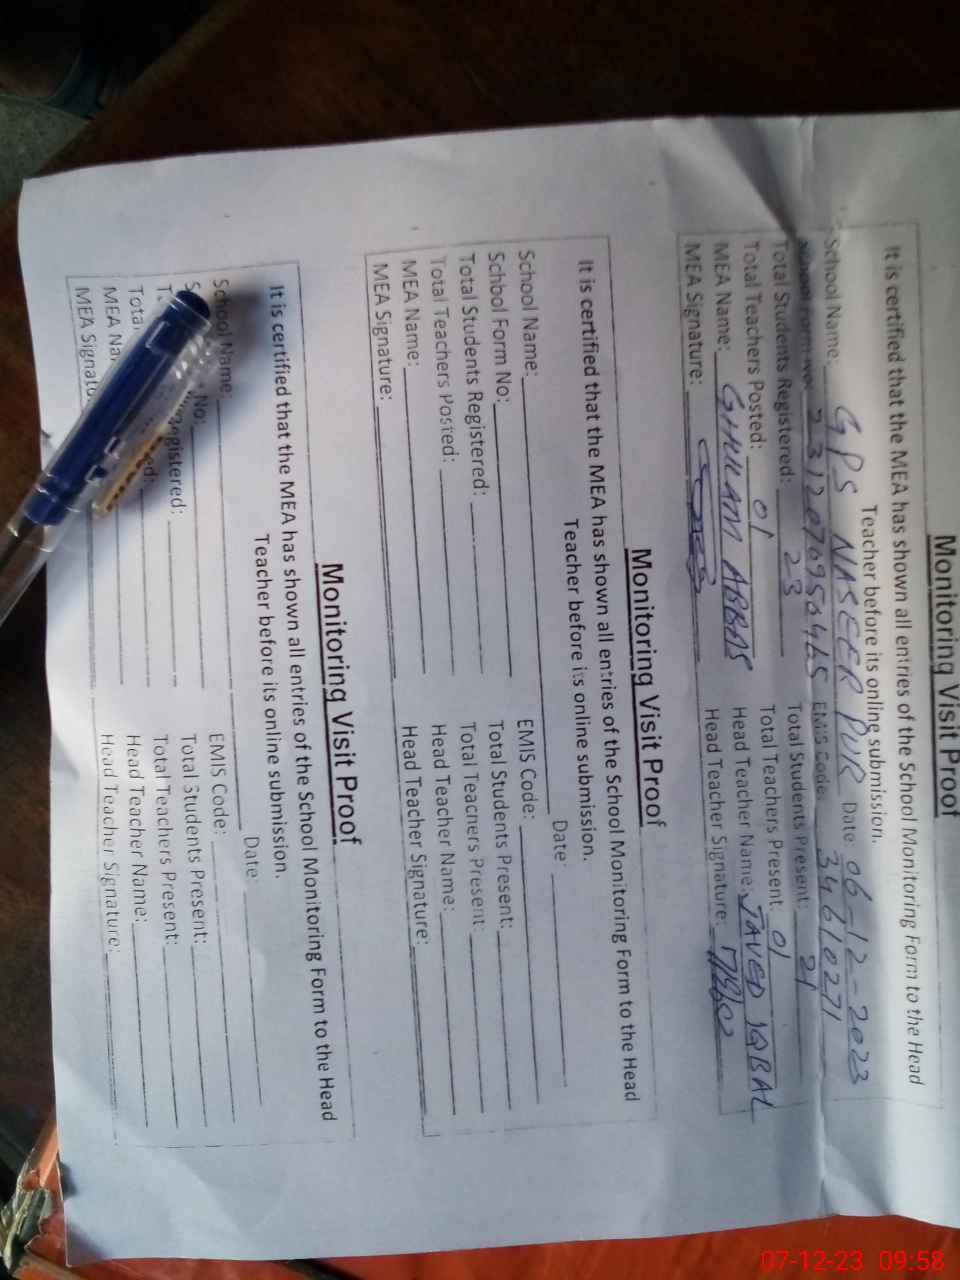 Monitoring Visit Proof
It is certified that the MEA has shown all entries of the School Monitoring Form to the Head
Teacher before its online submission.
School Name: GPS NASEER PUR Date: 06-12-2023
School Form No: EMIS Code: 34610271
Total Students Registered: 23 Total Students Present: 21
Total Teachers Posted: 01 Total Teachers Present: 01
MEA Name: GHULAM ABBAS Head Teacher Name: JAVED IQBAL
MEA Signature: Head Teacher Signature:
Monitoring Visit Proof
It is certified that the MEA has shown all entries of the School Monitoring Form to the Head
Teacher before its online submission.
School Name: Date:
School Form No: EMIS Code:
Total Students Registered: Total Students Present:
Total Teachers Posted: Total Teachers Present:
MEA Name: Head Teacher Name:
MEA Signature: Head Teacher Signature:
Monitoring Visit Proof
It is certified that the MEA has shown all entries of the School Monitoring Form to the Head
Teacher before its online submission.
School Name: Date:
No: EMIS Code:
Registered: Total Students Present:
Total Teachers Present:
MEA Head Teacher Name:
MEA Head Teacher Signature:
07-12-23 09:58